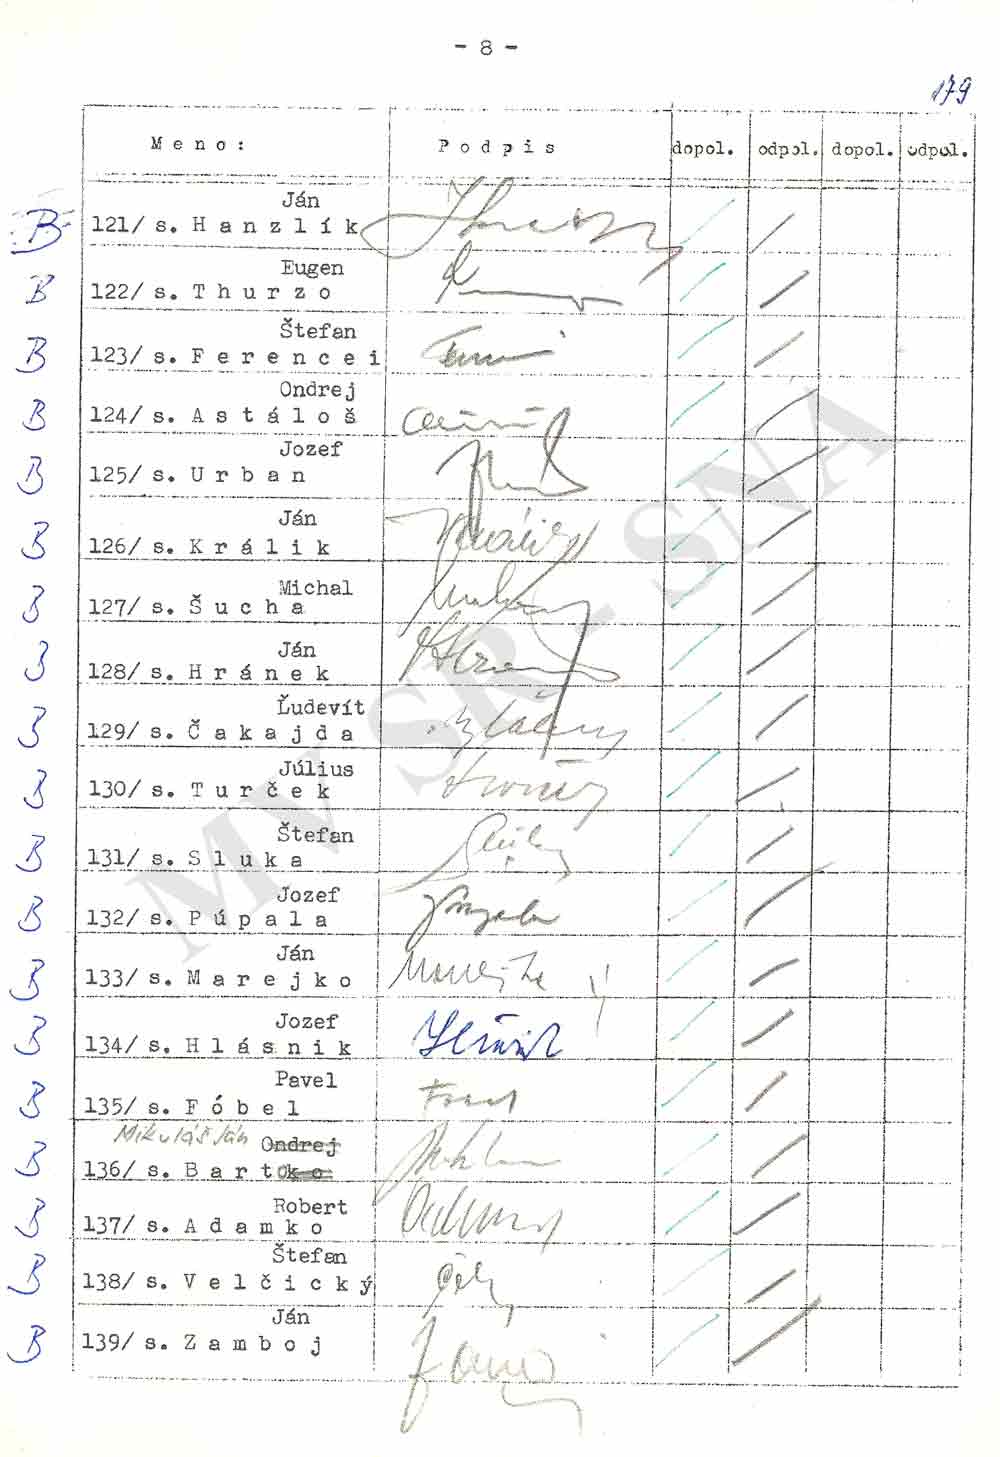 - 8 -
179
M e n o : P o d p i s dopol. odpol. dopol. odpol.
Ján
B 121/ s. H a n z l í k
Eugen
B 122/ s. T h u r z o
Štefan
B 123/ s. F e r e n c e i
Ondrej
B 124/ s. A s t á l o š
Jozef
B 125/ s. U r b a n
Ján
B 126/ s. K r á l i k
Michal
B 127/ s. Š u c h a
Ján
B 128/ s. H r á n e k
Ľudevít
B 129/ s. Č a k a j d a
Július
B 130/ s. T u r č e k
Štefan
B 131/ s. S l u k a
Jozef
B 132/ s. P ú p a l a
Ján
B 133/ s. M a r e j k o
Jozef
B 134/ s. H l á s n i k
Pavel
B 135/ s. F ó b e l
Mikuláš Ján Ondrej
B 136/ s. B a r t o k o
Robert
B 137/ s. A d a m k o
Štefan
B 138/ s. V e l č i c k ý
Ján
B 139/ s. Z a m b o j
MV SR - SNA